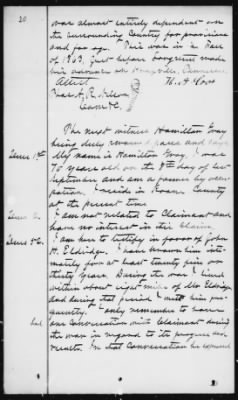 20
was almost entirely dependent on
the surrounding Country for provisions
and for age. This was in a Fall
of 1863. Just before Longstreet made
his advance on Knoxville, Tennessee.
Attest
The next witness Hamilton Gray
being duly sworn deposes and says
Item 1st. My name is Hamilton Gray, I was
75 years old on the 9th day of last
September and am a farmer by occu-
pation. I reside in County
at the present time
Item 2. I am not related to Claimant and
have no interest in this Claim.
I am here to testify in favor of John
H. Eldridge. I have known him inti-
mately for at least twenty five or
thirty years. During the war I lived
within about eight miles of Mr Eldridge
and during that period met him fre-
quently. I only remember to have
had one Conversation with Claimant during the
war in regard to its progress and
results. In that Conversation he expressed